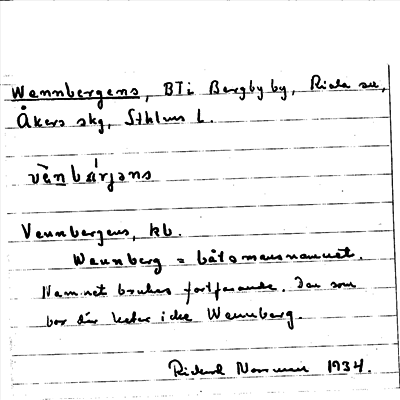 Wennbergens, BTi Bergby by, Riala sn,
Åkers skg, Sthlms L.
vènbǽrjəns
Vennbergens, kb.
Wennberg = båtsmansnamnet.
Namnet brukas fortfarande. Den som
bor där heter icke Wennberg.
Rickard Norrman 1934.